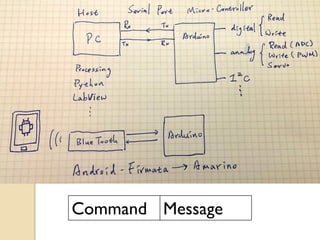 Host Serial Port Micro-Controller
PC Rx Tx Arduino digital Read
Tx Rx Write
analog Read (ADC)
Write (PWM)
Servo
I²C
Processing
Python
LabView
Blue Tooth Arduino
Android - Firmata → Amarino
Command Message